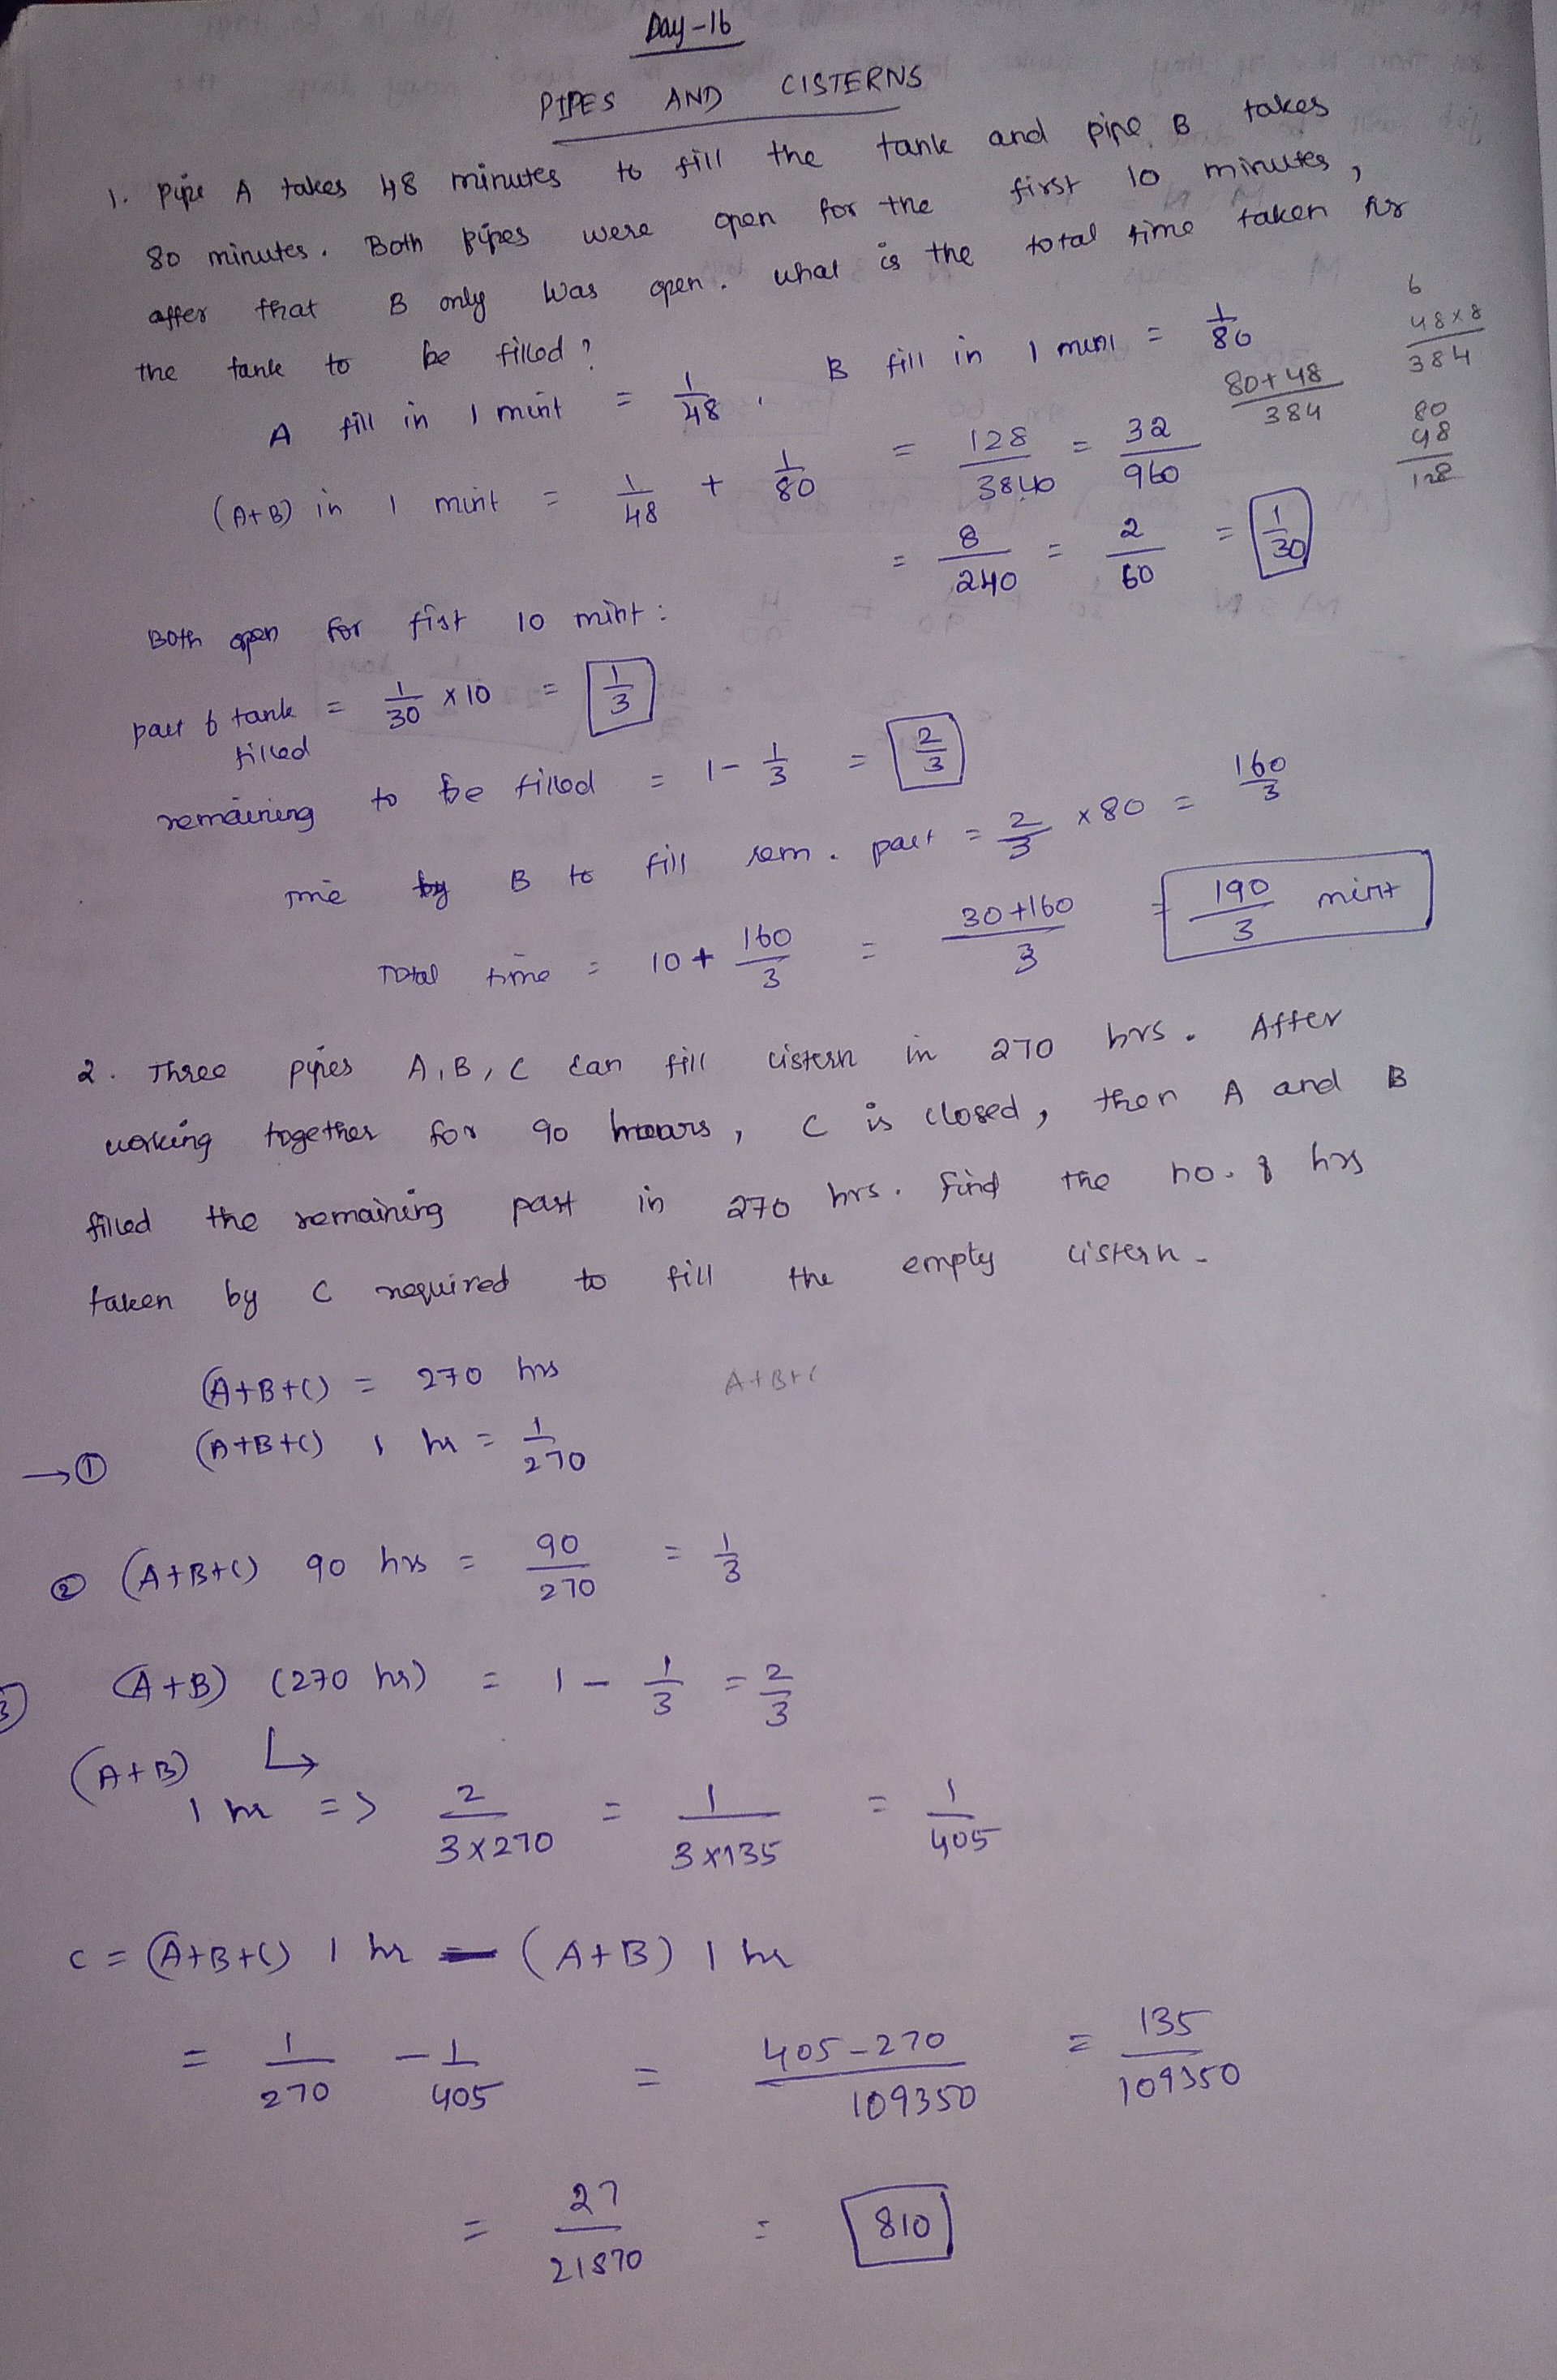 Day-16
PIPES AND CISTERNS
1. Pipe A takes 48 minutes to fill the tank and pipe B takes
80 minutes. Both pipes were open for the first 10 minutes,
after that B only was open. what is the total time taken for
the tank to be filled?
A fill in 1 mint = 1/48, B fill in 1 mint = 1/80
6
48x8
384
80+48
384
80
48
128
(A+B) in 1 mint = 1/48 + 1/80 = 128/3840 = 32/960
= 8/240 = 2/60 = 1/30
Both open for fist 10 mint:
part of tank filled = 1/30 x 10 = 1/3
remaining to be filled = 1 - 1/3 = 2/3
time by B to fill rem. part = 2/3 x 80 = 160/3
Total time = 10 + 160/3 = 30+160/3 = 190/3 mint
2. Three pipes A, B, C can fill cistern in 270 hrs. After
working together for 90 hours, C is closed, then A and B
filled the remaining part in 270 hrs. find the no. of hrs
taken by C required to fill the empty cistern.
(A+B+C) = 270 hrs A+B+C
→① (A+B+C) 1 hr = 1/270
② (A+B+C) 90 hrs = 90/270 = 1/3
3 (A+B) (270 hr) = 1 - 1/3 = 2/3
(A+B) ↳
1 hr => 2/3x270 = 1/3x135 = 1/405
C = (A+B+C) 1 hr - (A+B) 1 hr
= 1/270 - 1/405 = 405-270/109350 = 135/109350
= 27/21870 = 810